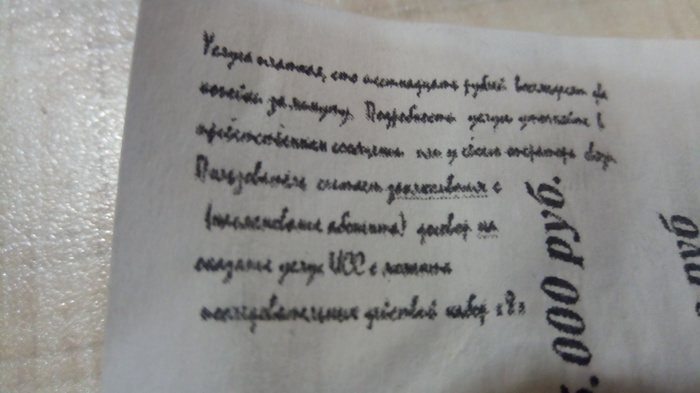 Услуга платная, сто шестнадцать рублей восемьдесят две
копейки за минуту. Подробности услуги уточняйте в
приветственном сообщении или у своего оператора связи.
Пользователь считает заключившим с
(наименование абонента) договор на
оказание услуг ИСС с момента
последовательных действий набор "8"
.000 руб.
руб